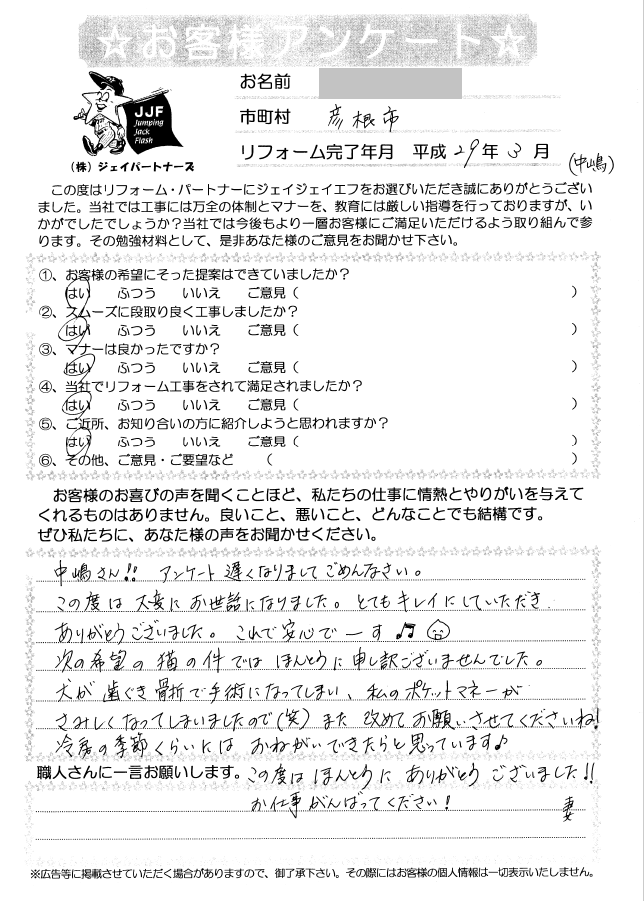 ☆お客様アンケート☆
JJF
Jumping
Jack
Flash
(株)ジェイパートナーズ
お名前
市町村 彦根市
リフォーム完了年月 平成29年3月
(中嶋)
この度はリフォーム・パートナーにジェイジェイエフをお選びいただき誠にありがとうござい
ました。当社では工事には万全の体制とマナーを、教育には厳しい指導を行っておりますが、い
かがでしたでしょうか?当社では今後もより一層お客様にご満足いただけるよう取り組んで参
ります。その勉強材料として、是非あなた様のご意見をお聞かせ下さい。
①、お客様の希望にそった提案はできていましたか?
はい ふつう いいえ ご意見( )
②、スムーズに段取り良く工事しましたか?
はい ふつう いいえ ご意見( )
③、マナーは良かったですか?
はい ふつう いいえ ご意見( )
④、当社でリフォーム工事をされて満足されましたか?
はい ふつう いいえ ご意見( )
⑤、ご近所、お知り合いの方に紹介しようと思われますか?
はい ふつう いいえ ご意見( )
⑥、その他、ご意見・ご要望など ( )
お客様のお喜びの声を聞くことほど、私たちの仕事に情熱とやりがいを与えて
くれるものはありません。良いこと、悪いこと、どんなことでも結構です。
ぜひ私たちに、あなた様の声をお聞かせください。
中嶋さん!! アンケート遅くなりましてごめんなさい。
この度は大変にお世話になりました。とてもキレイにしていただき
ありがとうございました。これで安心でーす♫
次の希望の猫の件では ほんとうに申し訳ございませんでした。
犬が歯ぐき骨折で手術になってしまい、私のポケットマネーが
さみしくなってしまいましたので(笑)また改めてお願いさせてくださいね!
冷房の季節くらいには おねがいできたらと思っています♪
職人さんに一言お願いします。この度は ほんとうに ありがとう ございました!!
お仕事がんばってください! 妻
※広告等に掲載させていただく場合がありますので、御了承下さい。その際にはお客様の個人情報は一切表示いたしません。